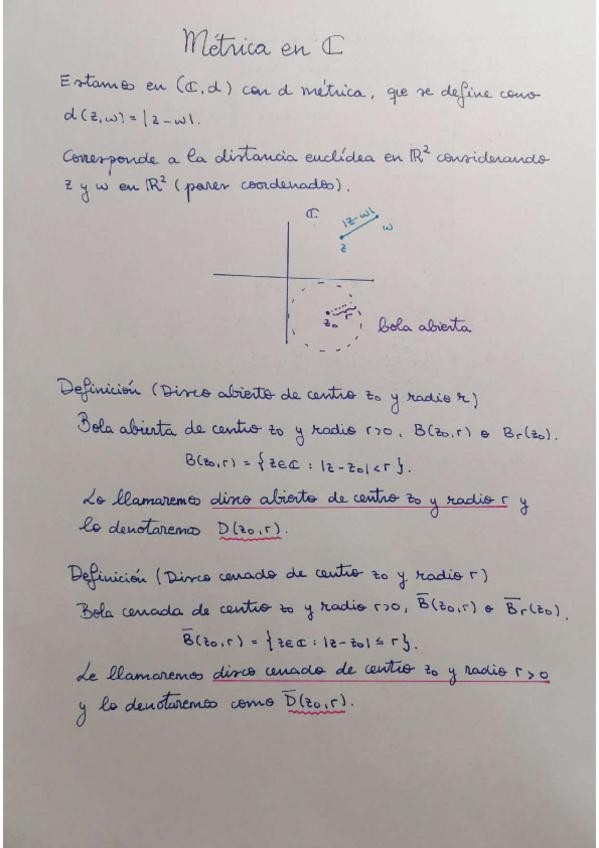 Métrica en ℂ
Estamos en (ℂ, d) con d métrica, que se define como
d(z,w) = |z-w|.
Corresponde a la distancia euclídea en ℝ² considerando
z y w en ℝ² (pares coordenados).
ℂ
|z-w|
w
z
z₀ r
bola abierta
Definición (Disco abierto de centro z₀ y radio r)
Bola abierta de centro z₀ y radio r>0, B(z₀,r) o Br(z₀).
B(z₀,r) = {z∈ℂ : |z-z₀|<r}.
Lo llamaremos disco abierto de centro z₀ y radio r y
lo denotaremos D(z₀,r).
Definición (Disco cerrado de centro z₀ y radio r)
Bola cerrada de centro z₀ y radio r>0, B̅(z₀,r) o B̅r(z₀).
B̅(z₀,r) = {z∈ℂ : |z-z₀|≤r}.
Le llamaremos disco cerrado de centro z₀ y radio r>0
y lo denotaremos como D̅(z₀,r).